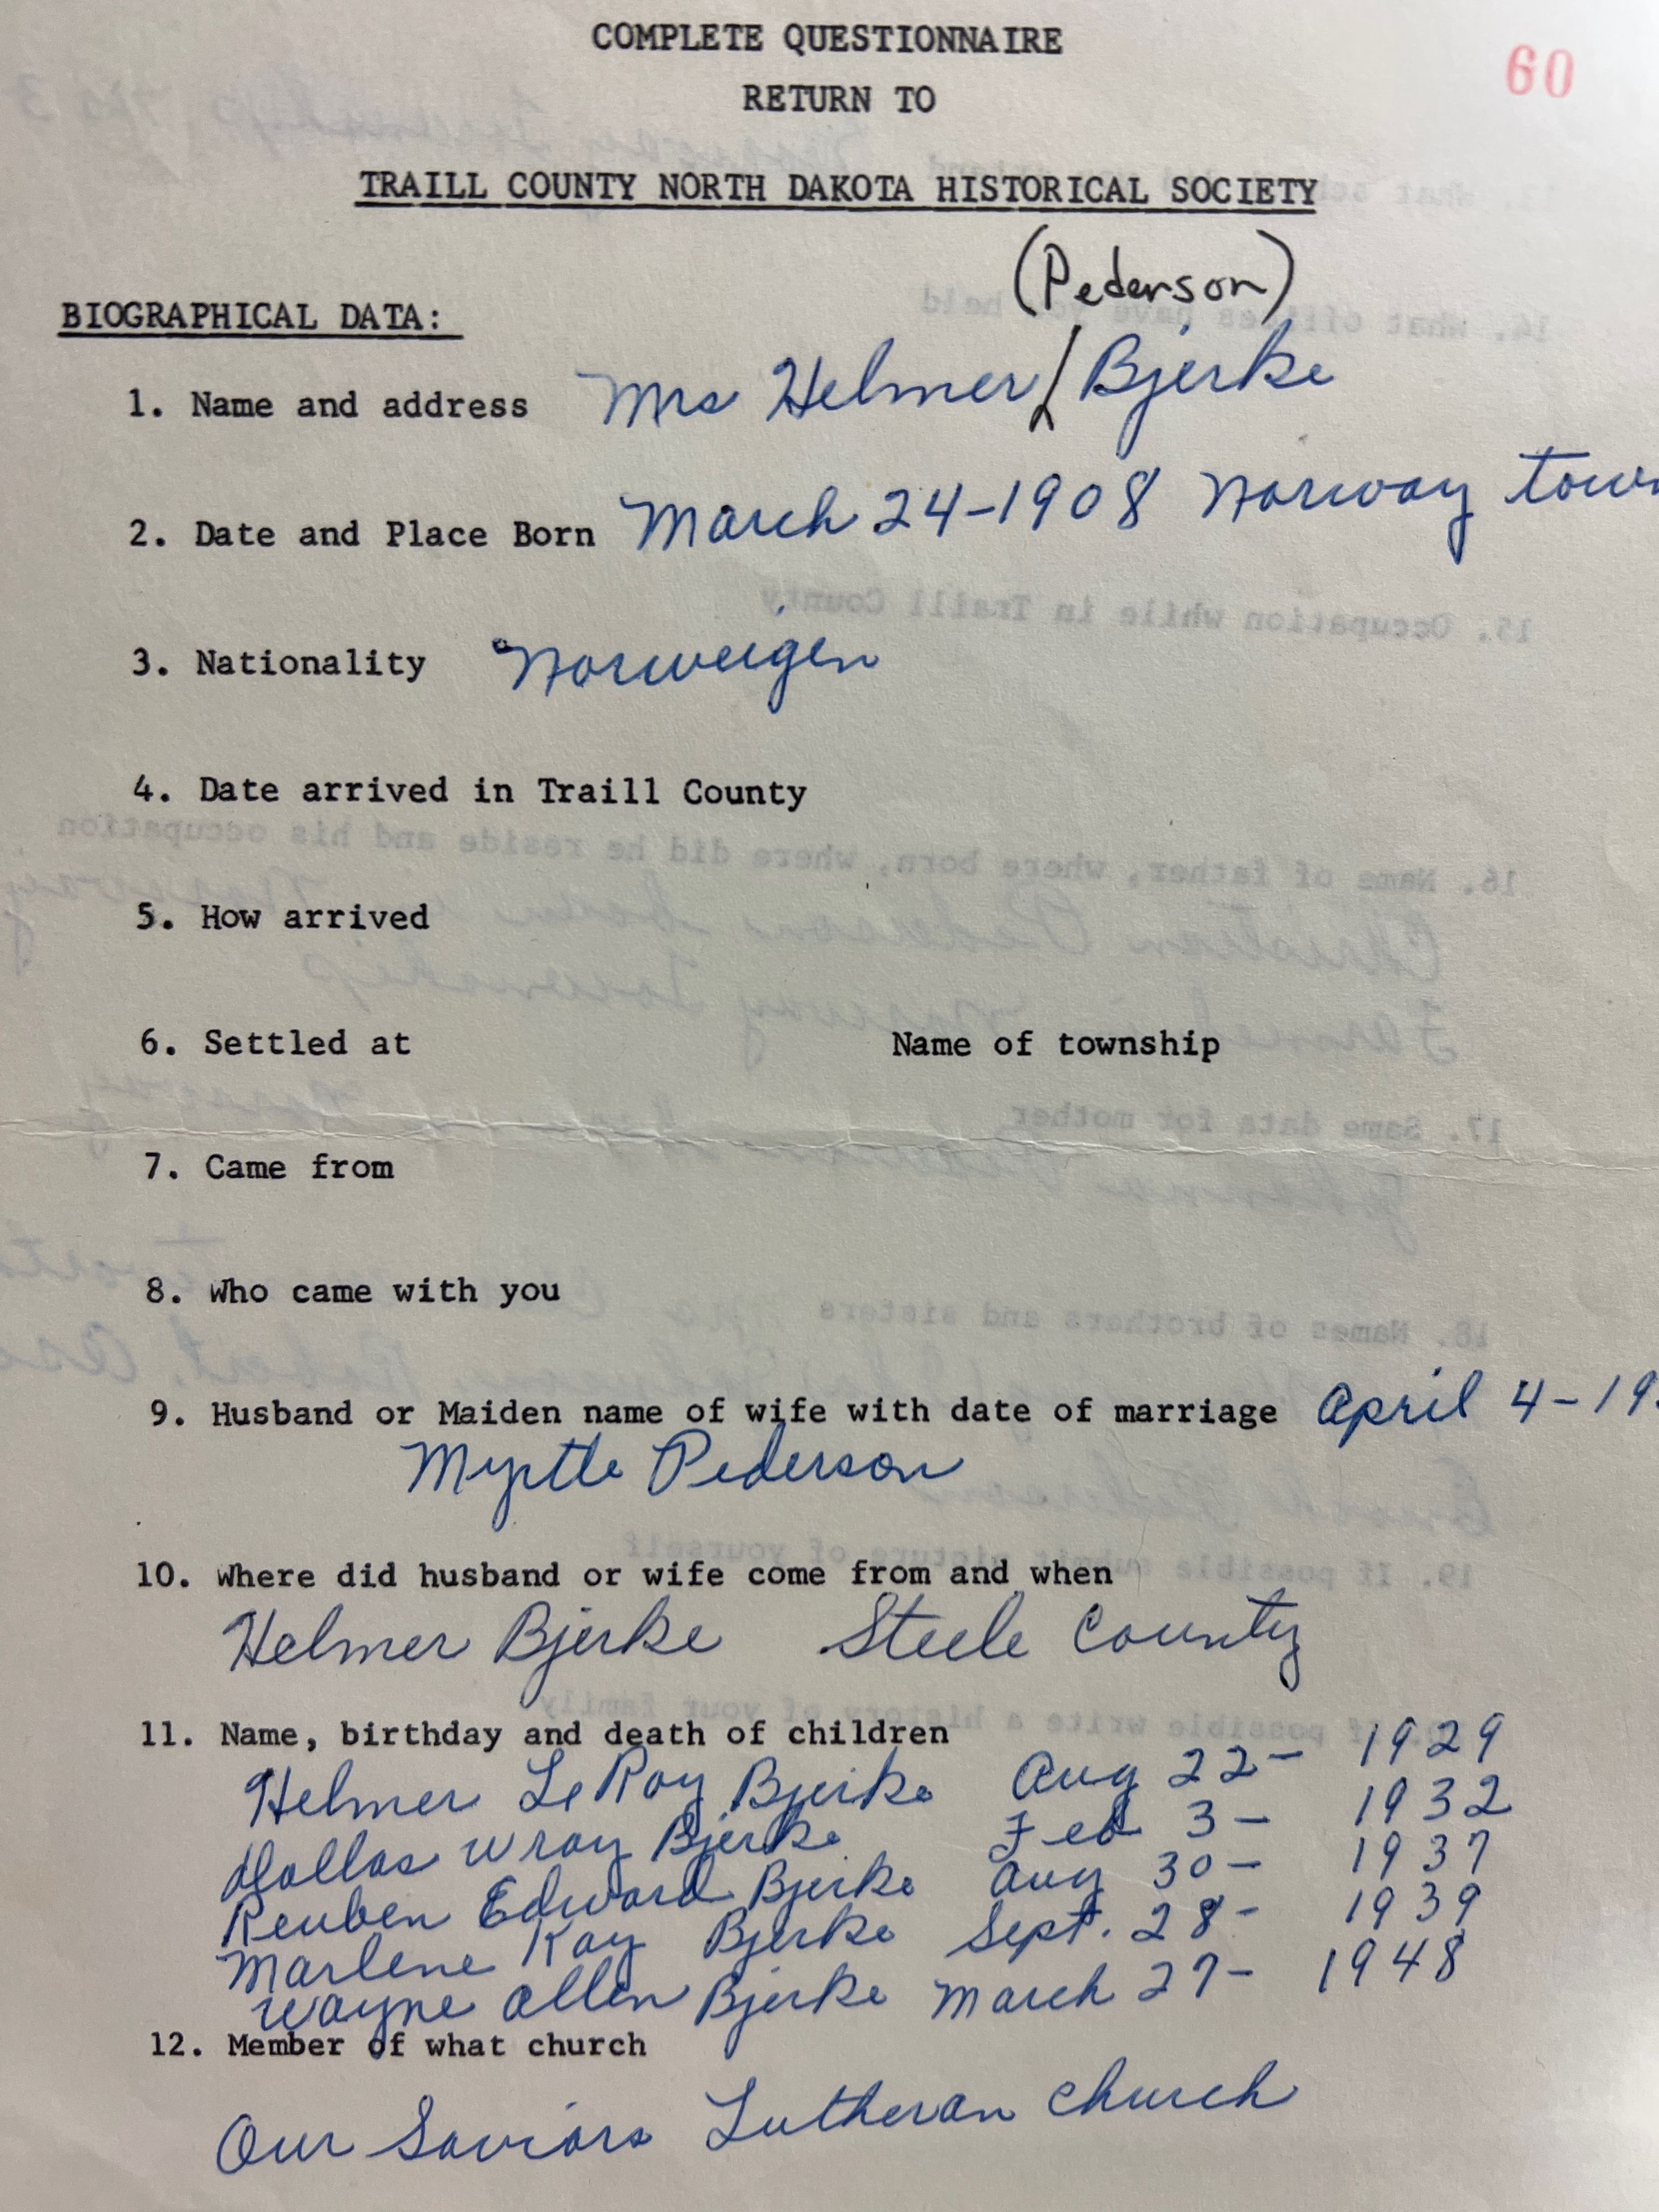 COMPLETE QUESTIONNAIRE
60
RETURN TO
TRAILL COUNTY NORTH DAKOTA HISTORICAL SOCIETY
(Pederson)
BIOGRAPHICAL DATA:
1. Name and address Mrs Helmer Bjerke
2. Date and Place Born March 24-1908 Norway town
3. Nationality Norweigen
4. Date arrived in Traill County
5. How arrived
6. Settled at Name of township
7. Came from
8. Who came with you
9. Husband or Maiden name of wife with date of marriage April 4-19
Myrtle Pederson
10. Where did husband or wife come from and when
Helmer Bjerke Steele County
11. Name, birthday and death of children
Helmer LeRoy Bjerke Aug 22- 1929
Dallas Wray Bjerke Feb 3- 1932
Reuben Edward Bjerke Aug 30- 1937
Marlene Kay Bjerke Sept. 28- 1939
Wayne Allen Bjerke March 27- 1948
12. Member of what church
Our Saviors Lutheran Church